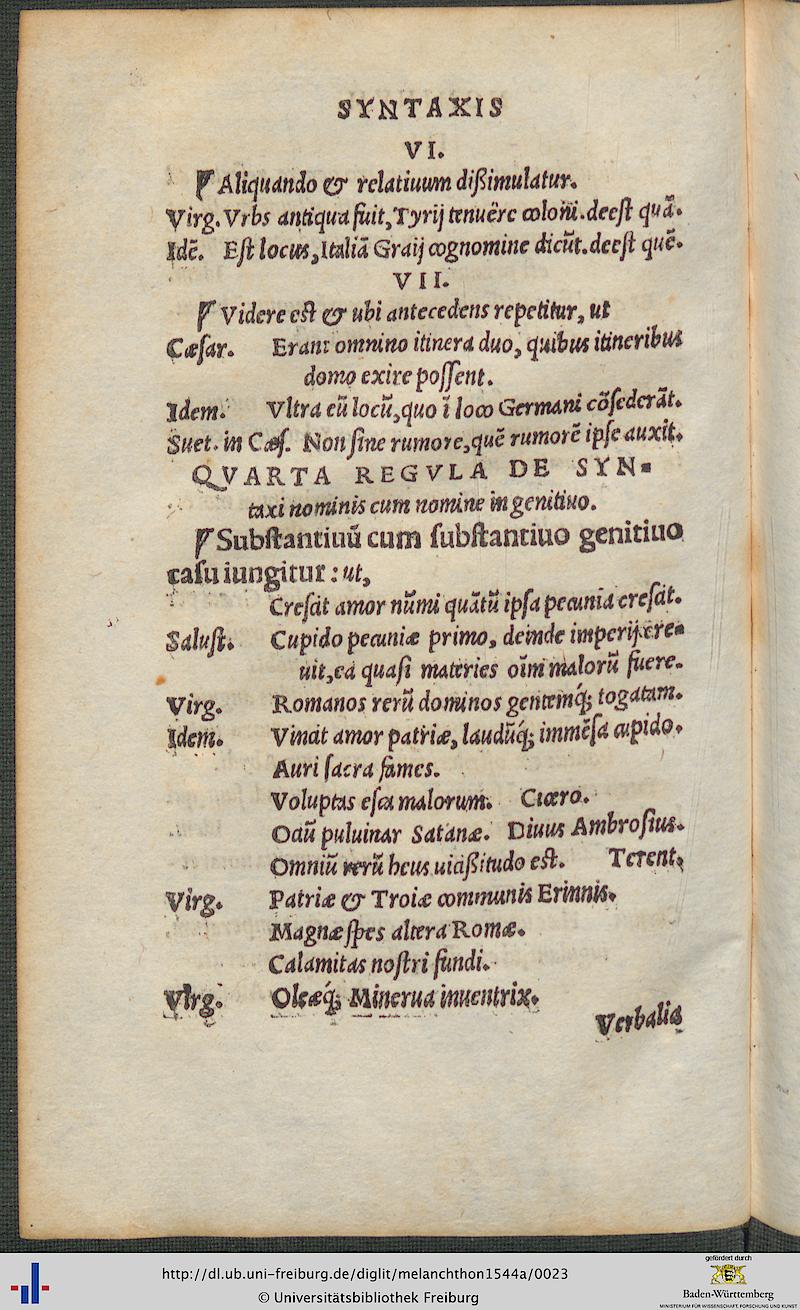 SYNTAXIS
VI.
¶ Aliquando & relatiuum dißimulatur.
Virg. Vrbs antiqua fuit, Tyrij tenuêre coloni. deest quā.
Idē. Est locus, Italiā Graij cognomine dicūt. deest quē.
VII.
¶ Videre est & ubi antecedens repetitur, ut
Cæſar. Erant omnino itinera duo, quibus itineribus
domo exire poſſent.
Idem. Vltra eū locū, quo ī loco Germani cōſederāt.
Suet. in Cæſ. Non ſine rumore, quē rumorē ipſe auxit.
QVARTA REGVLA DE SYN-
taxi nominis cum nomine in genitiuo.
¶ Subſtantiuū cum ſubſtantiuo genitiuo
caſu iungitur : ut,
Creſcit amor nūmi quātū ipſa pecunia creſcit.
Saluſt. Cupido pecuniæ primo, deinde imperij cre-
uit, ea quaſi materies oīm malorū fuere.
Virg. Romanos rerū dominos gentemq́; togatam.
Idem. Vincit amor patriæ, laudūq́; immēſa cupido.
Auri ſacra fames.
Voluptas eſca malorum. Cicero.
Ociū puluinar Satanæ. Diuus Ambroſius.
Omniū rerū heus uicißitudo est. Terent.
Virg. Patriæ & Troiæ communis Erinnis.
Magnæ ſpes altera Romæ.
Calamitas noſtri fundi.
Virg. Oleæq́; Minerua inuentrix.
Verbalia
http://dl.ub.uni-freiburg.de/diglit/melanchthon1544a/0023
© Universitätsbibliothek Freiburg
gefördert durch
Baden-Württemberg
MINISTERIUM FÜR WISSENSCHAFT, FORSCHUNG UND KUNST